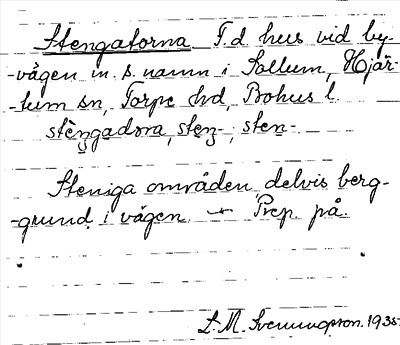 Stengatorna F.d. hus vid by-
-vägen m. s. namn i Sollum, Hjär-
-tum sn, Torpe hd, Bohus l.
stèngadora, sten-, sten-.
Steniga områden, delvis berg-
-grund i vägen. — Prep. på.
L. M. Svenungsson. 1935.